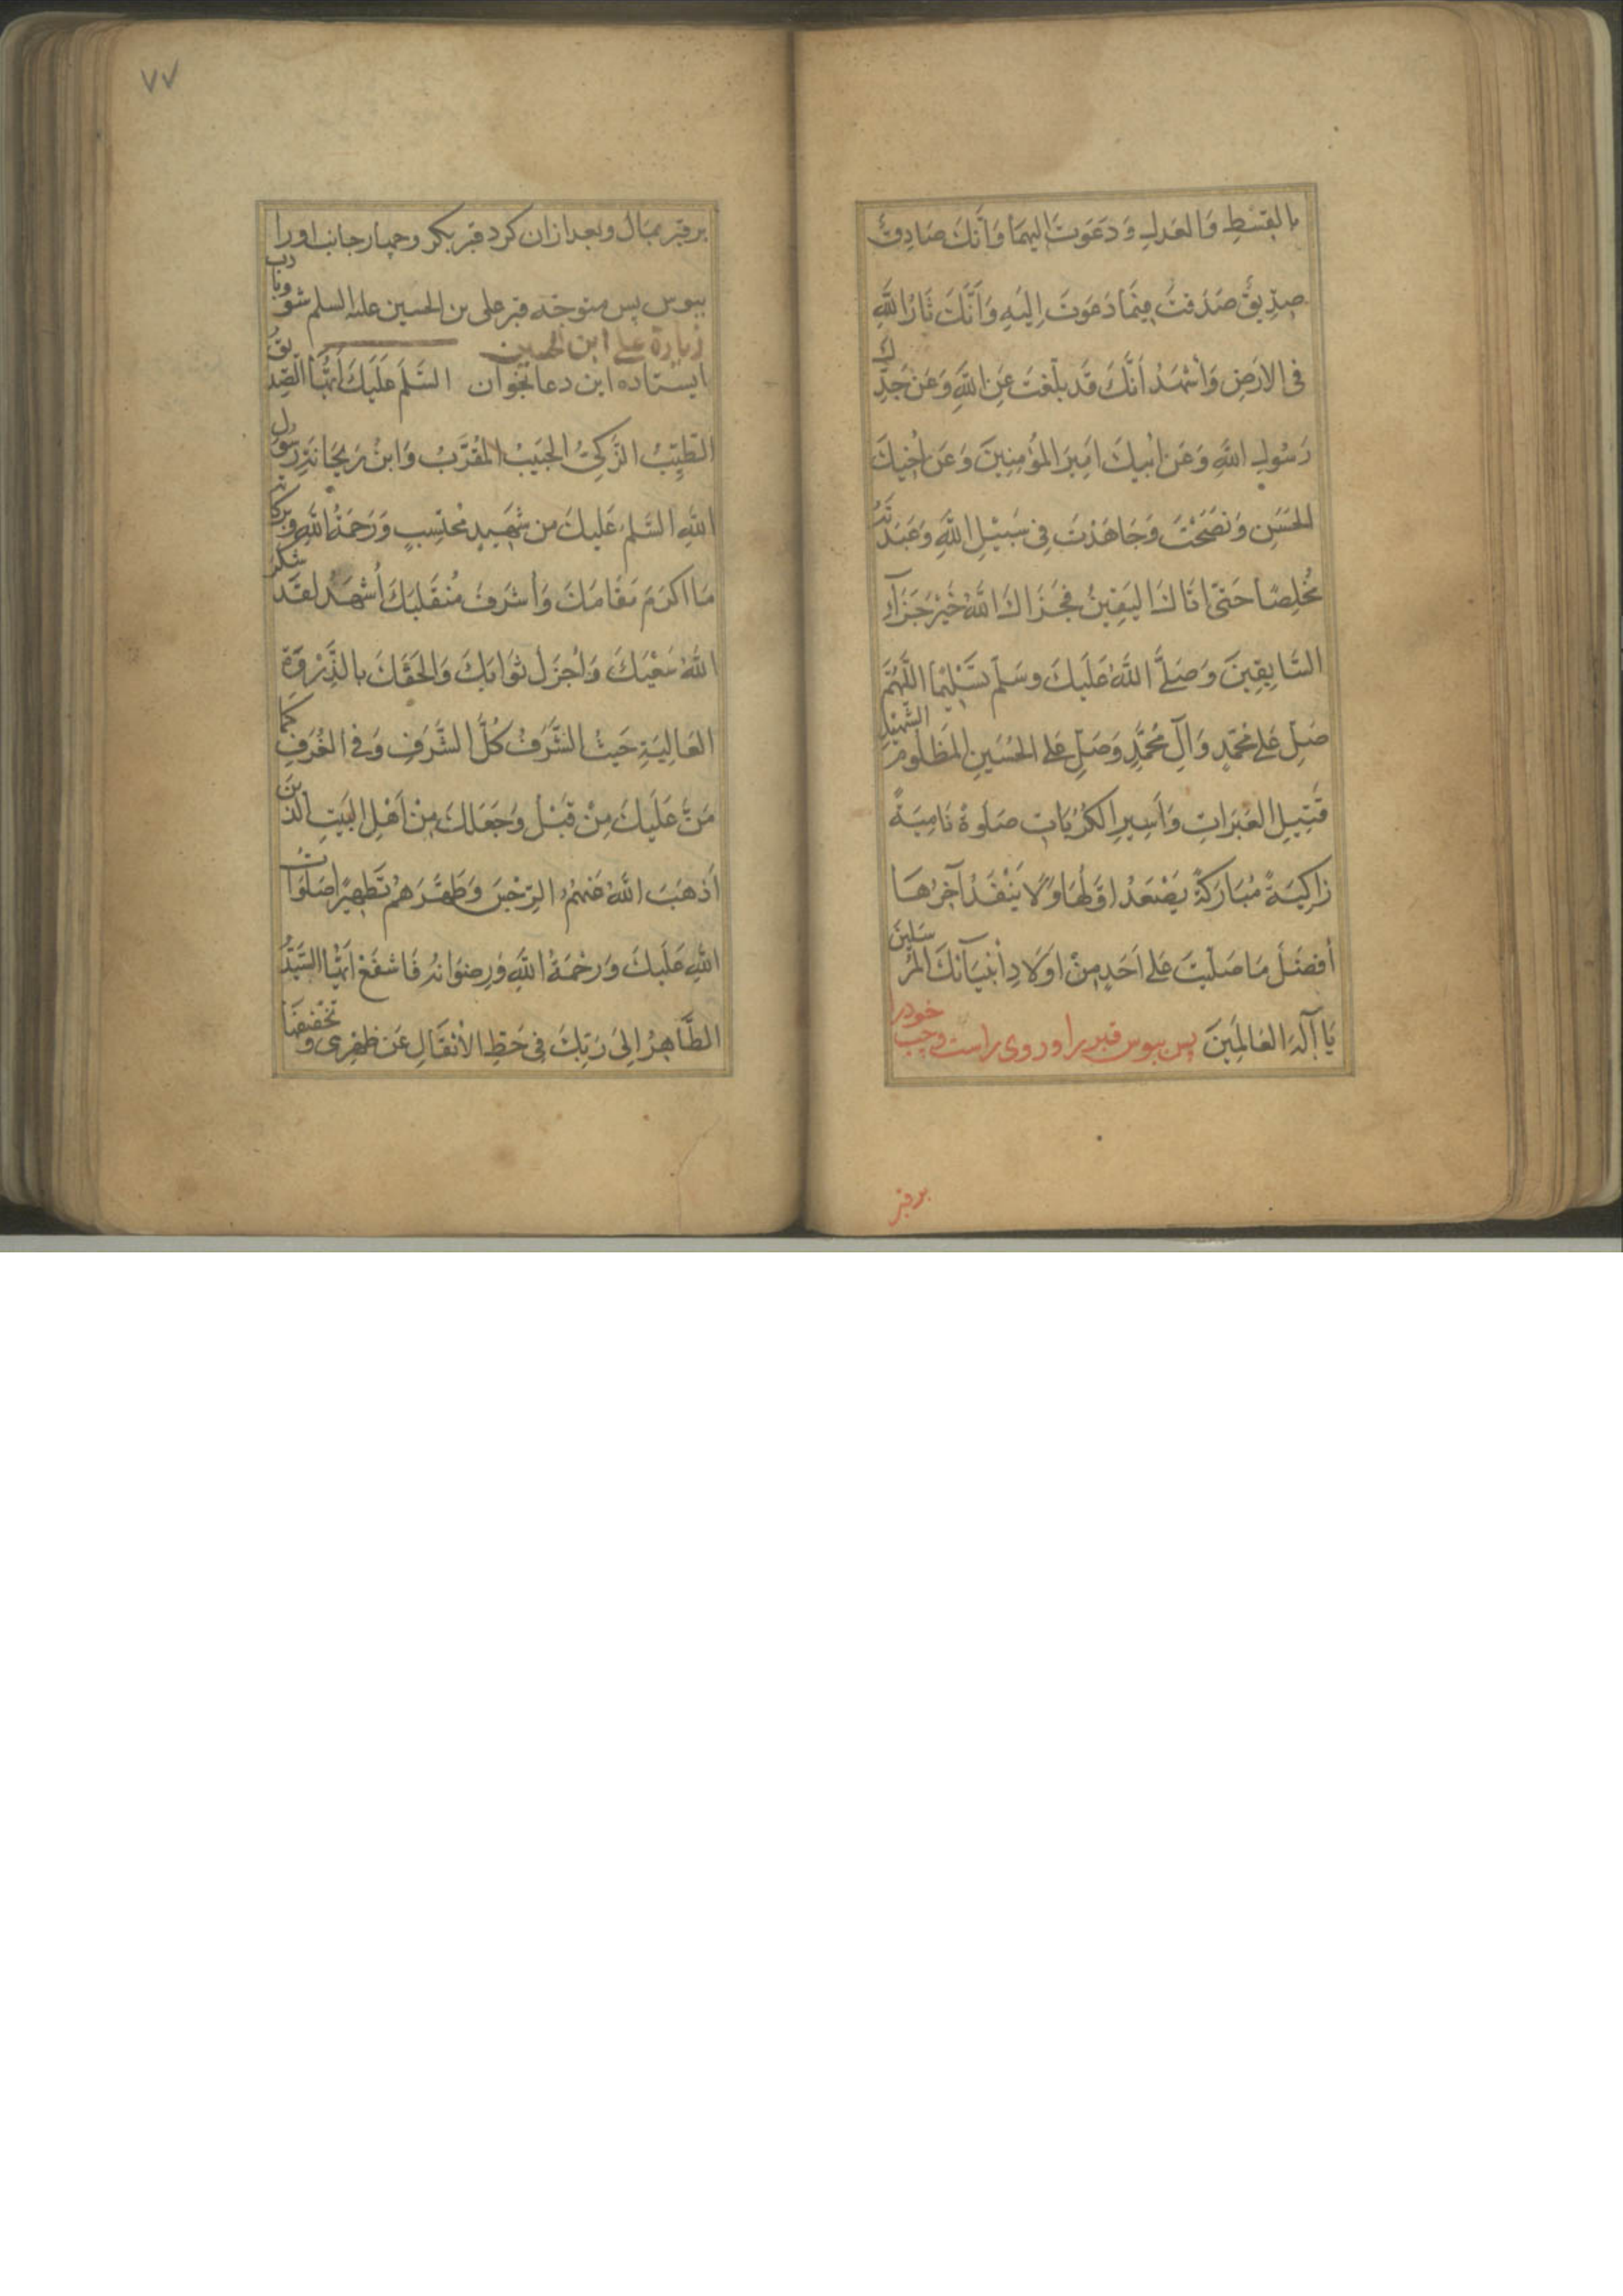 بِالقِسْطِ وَالعَدلِ وَدَعَوتَ اِلَيهِمَا وَاَنَّكَ صَادِقٌ
صِدِّيقٌ صَدَقتَ فِيمَا دَعَوتَ اِلَيهِ وَاَنَّكَ ثَارُ اللَّهِ
فِى الاَرضِ وَاَشهَدُ اَنَّكَ قَد بَلَّغتَ عَنِ اللَّهِ وَعَن جَدِّكَ
رَسُولِ اللَّهِ وَعَن اَبيكَ اَمِيرِ المُؤمِنِينَ وَعَن اَخِيكَ
الحَسَنِ وَنَصَحْتَ وَجَاهَدْتَ فِى سَبِيْلِ اللَّهِ وَعَبَدتَهُ
مُخلِصًا حَتّىٰ اَتَاكَ اليَقِينُ فَجَزَاكَ اللَّهُ خَيْرَ جَزَآءِ
السَّابِقِينَ وَصَلَّى اللَّهُ عَلَيكَ وَسَلَّم تَسْلِيمًا اللَّهُمَّ
صَلِّ عَلىٰ مُحَمَّدٍ وَآلِ مُحَمَّدٍ وَصَلِّ عَلىَ الحُسَينِ المَظلُومِ الشَّهِيدِ
قَتِيلِ العَبَرَاتِ وَاَسِيرِ الكُرُبَاتِ صَلَوةً نَامِيَةً
زَاكِيَةً مُبَارَكَةً يَصْعَدُ اَوَّلُهَا وَلَا يَنْفَدُ آخِرُهَا
أَفضَلَ مَا صَلَّيتَ عَلىٰ اَحَدٍ مِنْ اَولَادِ أَنْبِيَآئكَ المُرسَلِينَ
يَا اِلٰهَ العَالَمِينَ پس ببوس قبر را و روى راست و چپ خود را
بر قبر
٧٧
بر قبر بمال و بعد ازان كرد قبر بكر و چهار جانب او را
ببوس پس متوجه قبر على بن الحسين عليه السلم شو و باادب
زيارة على ابن الحسين
ايستاده اين دعا بخوان السَّلٰمُ عَلَيكَ اَيُّهَا الصِّدِّيقُ
الطَّيِّبُ الزَّكِىُّ الحَبِيبُ المُقَرَّبُ وَابنُ رَيحَانَةِ رَسُولِ
اللهِ السَّلٰمُ عَلَيكَ مِن شَهِيدٍ مُحتَسِبٍ وَرَحمَةُ اللَّهِ وَبَركَاتُه
مَا اَكرَمَ مَقَامَكَ وَأَشرَفَ مُنقَلَبَكَ أَشهَدُ لَقَد شكر
اللَّهُ سَعْيَكَ وَأَجزَلَ ثَوَابَكَ وَاَلحَقَكَ بِالذِّرْوَةِ
العَالِيَةِ حَيثُ الشَّرَفُ كُلُّ الشَّرَفِ وَفى الغُرَفِ كَمَا
مَنَّ عَلَيكَ مِنْ قَبْلُ وَجَعَلَكَ مِنْ اَهلِ البَيتِ الَّذِينَ
أَذهَبَ اللَّهُ عَنهُمُ الرِّجْسَ وَطَهَّرَهُم تَطهِيرًا صَلَوَاتُ
اللَّهِ عَلَيكَ وَرَحْمَةُ اللَّهِ وَرِضوَانُهُ فَاشفَعْ اَيُّهَا السَّيِّدُ
الطَّاهِرُ اِلىٰ رَبِّكَ فِى حَطِّ الاَثقَالِ عَن ظَهرِى وَتَخفِيفهَا